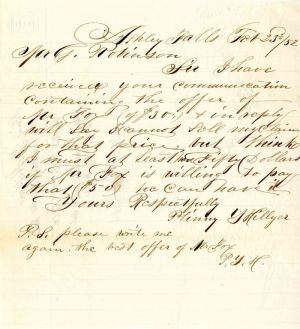 Ashley Falls Feb 23d/52
Mr G. Robinson
Sir I have
received your communication
containing the offer of
Mr Fox of $30, & in reply
will say I cannot sell my claim
for that price, but think
I must at least have Fifty Dollars
if Mr Fox is willing to pay
that (50) he can have it
Yours Respectfully
Pliny Y Hillyer
P.S. please write me
again. the best offer of Mr Fox
P. Y. H.